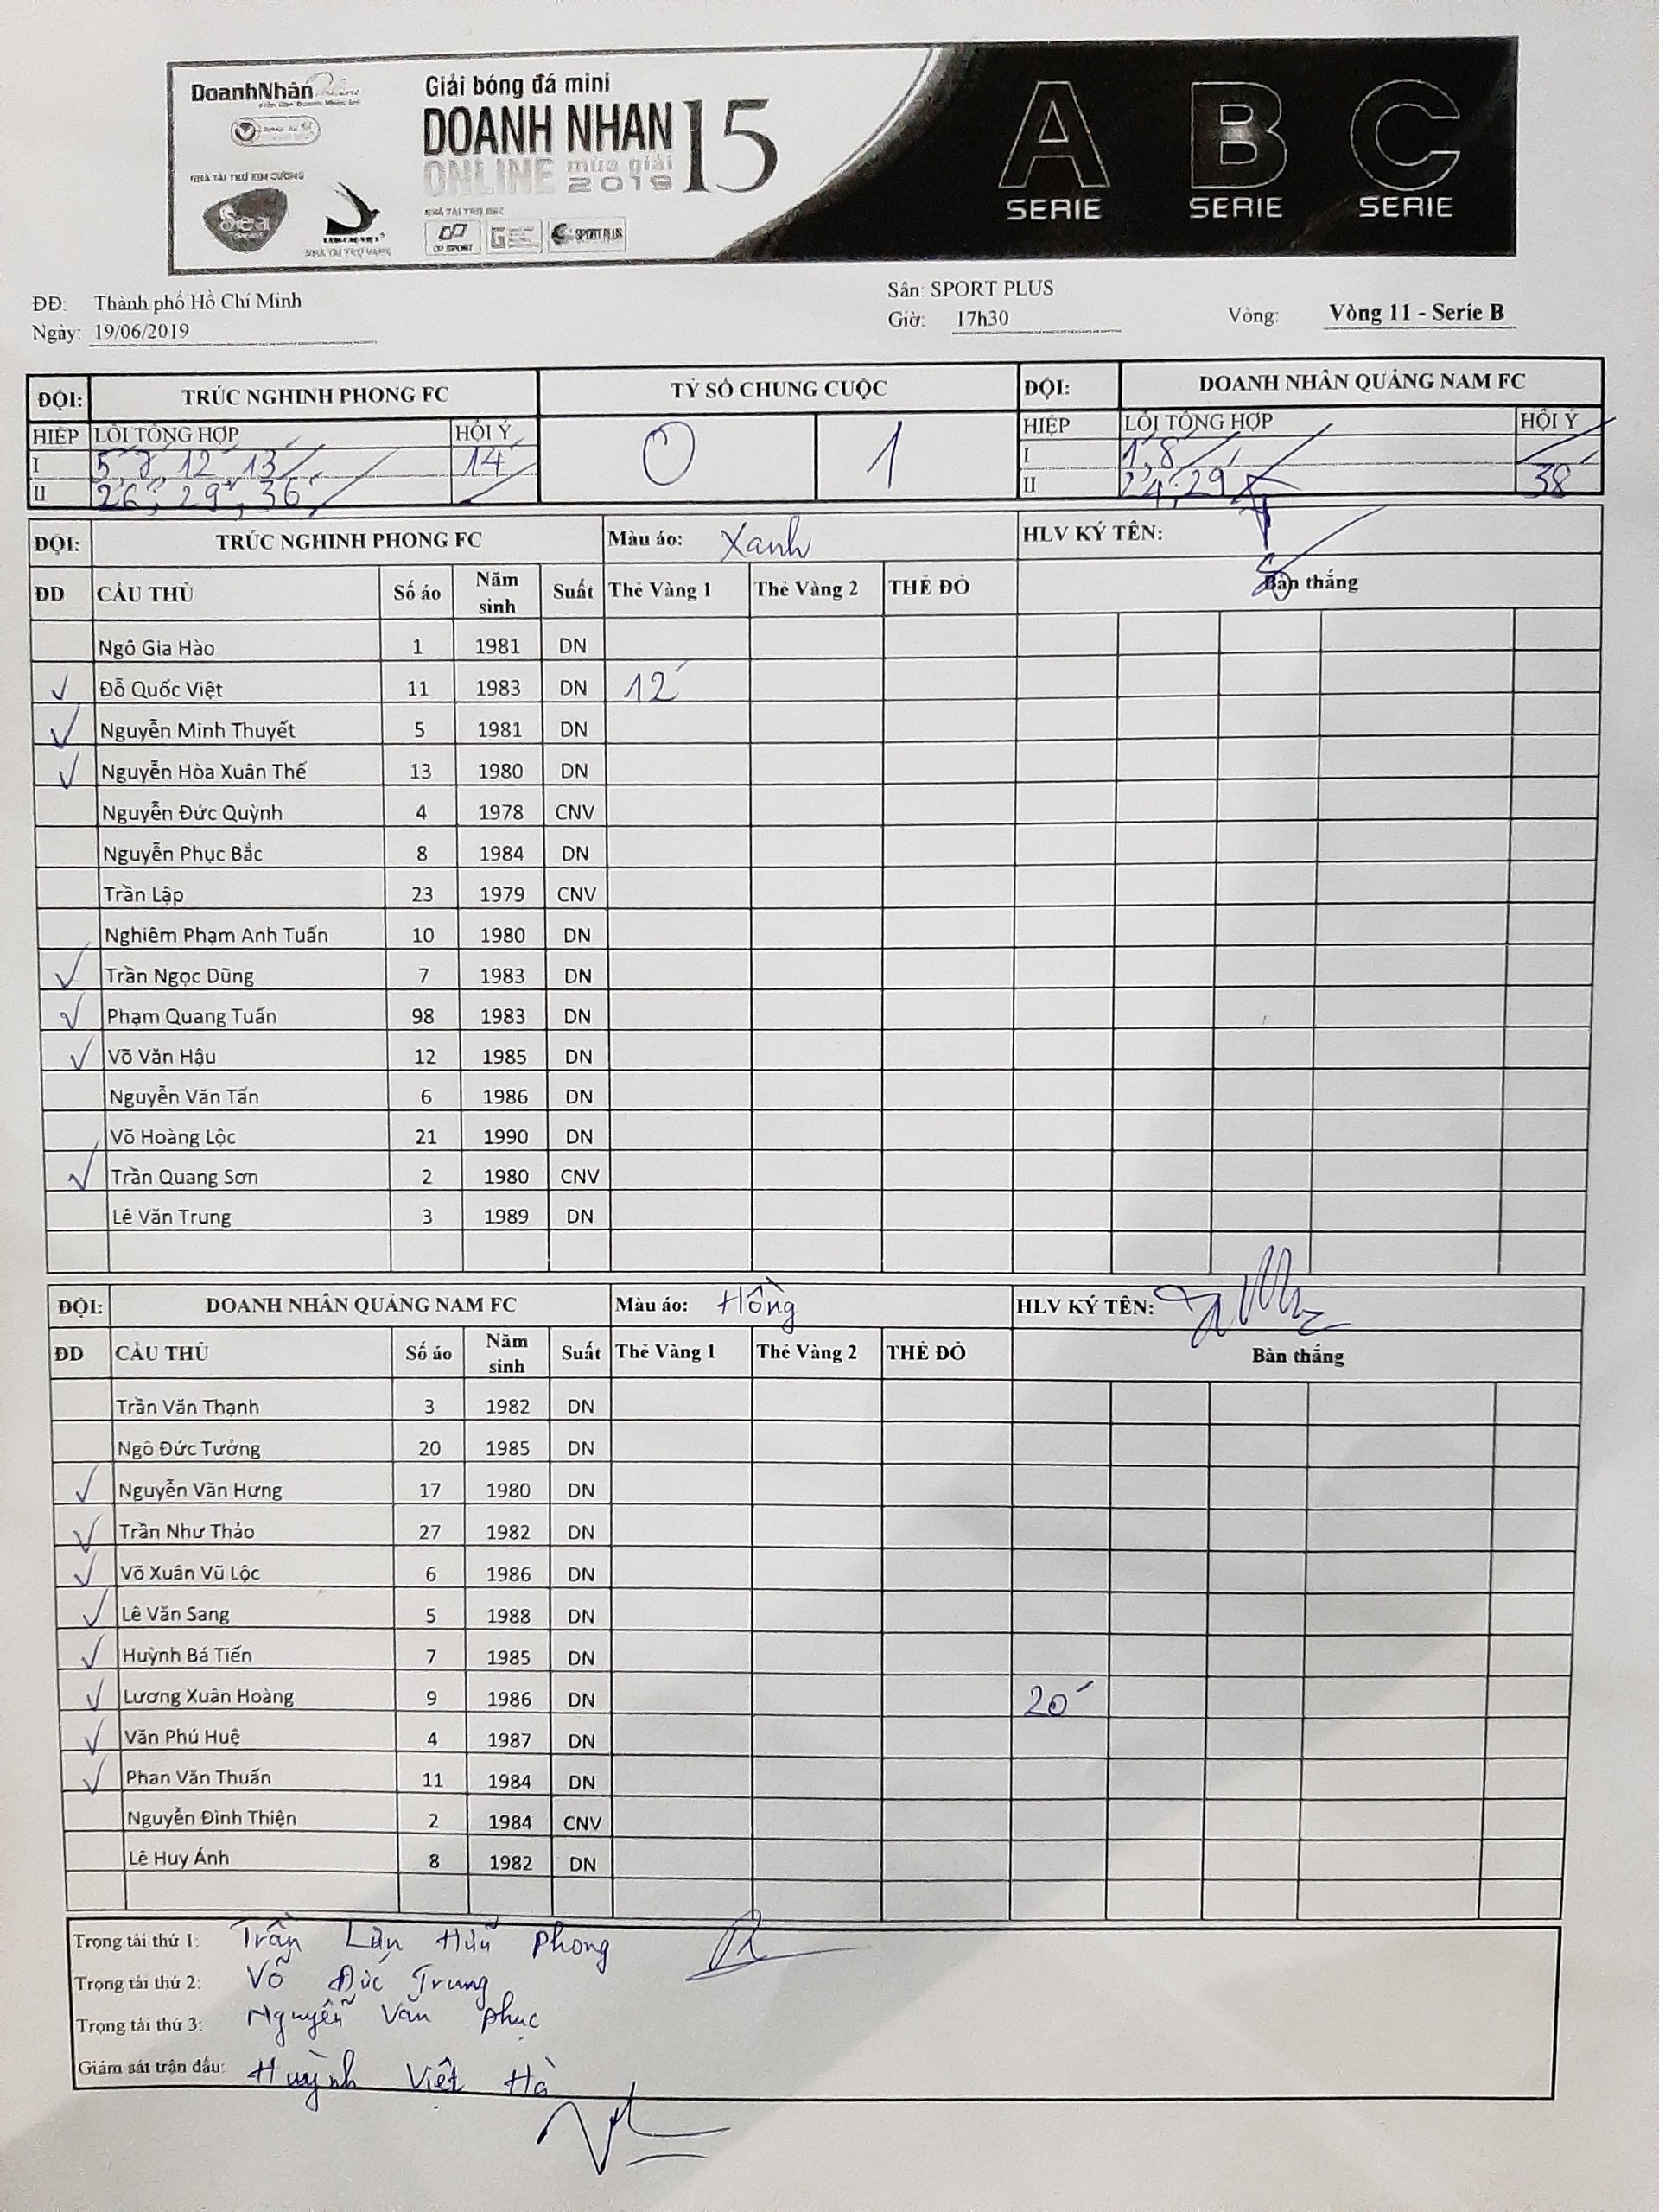 DoanhNhân Online
Giải bóng đá mini
DOANH NHAN 15
ONLINE mùa giải 2019
NHÀ TÀI TRỢ KIM CƯƠNG
Sea
NHÀ TÀI TRỢ VÀNG
NHÀ TÀI TRỢ BẠC
CP SPORT
SPORT PLUS
A B C
SERIE SERIE SERIE
ĐĐ: Thành phố Hồ Chí Minh Sân: SPORT PLUS
Ngày: 19/06/2019 Giờ: 17h30 Vòng: Vòng 11 - Serie B
ĐỘI: TRÚC NGHINH PHONG FC TỶ SỐ CHUNG CUỘC ĐỘI: DOANH NHÂN QUẢNG NAM FC
HIỆP LỖI TỔNG HỢP HỘI Ý 0 1 HIỆP LỖI TỔNG HỢP HỘI Ý
I 5, 7, 12, 13 14 I 1, 8
II 26, 29, 36 II 24, 29 38
ĐỘI: TRÚC NGHINH PHONG FC Màu áo: Xanh HLV KÝ TÊN:
ĐD CẦU THỦ Số áo Năm sinh Suất Thẻ Vàng 1 Thẻ Vàng 2 THẺ ĐỎ Bàn thắng
Ngô Gia Hào 1 1981 DN
✓ Đỗ Quốc Việt 11 1983 DN 12'
✓ Nguyễn Minh Thuyết 5 1981 DN
✓ Nguyễn Hòa Xuân Thế 13 1980 DN
Nguyễn Đức Quỳnh 4 1978 CNV
Nguyễn Phục Bắc 8 1984 DN
Trần Lập 23 1979 CNV
Nghiêm Phạm Anh Tuấn 10 1980 DN
✓ Trần Ngọc Dũng 7 1983 DN
✓ Phạm Quang Tuấn 98 1983 DN
✓ Võ Văn Hậu 12 1985 DN
Nguyễn Văn Tấn 6 1986 DN
Võ Hoàng Lộc 21 1990 DN
✓ Trần Quang Sơn 2 1980 CNV
Lê Văn Trung 3 1989 DN
ĐỘI: DOANH NHÂN QUẢNG NAM FC Màu áo: Hồng HLV KÝ TÊN:
ĐD CẦU THỦ Số áo Năm sinh Suất Thẻ Vàng 1 Thẻ Vàng 2 THẺ ĐỎ Bàn thắng
Trần Văn Thạnh 3 1982 DN
Ngô Đức Tưởng 20 1985 DN
✓ Nguyễn Văn Hưng 17 1980 DN
✓ Trần Như Thảo 27 1982 DN
✓ Võ Xuân Vũ Lộc 6 1986 DN
✓ Lê Văn Sang 5 1988 DN
✓ Huỳnh Bá Tiến 7 1985 DN
✓ Lương Xuân Hoàng 9 1986 DN 20'
✓ Văn Phú Huệ 4 1987 DN
✓ Phan Văn Thuấn 11 1984 DN
Nguyễn Đình Thiện 2 1984 CNV
Lê Huy Ánh 8 1982 DN
Trọng tài thứ 1: Trần Hữu Phong
Trọng tài thứ 2: Võ Đức Trung
Trọng tài thứ 3: Nguyễn Văn Phục
Giám sát trận đấu: Huỳnh Việt Hà